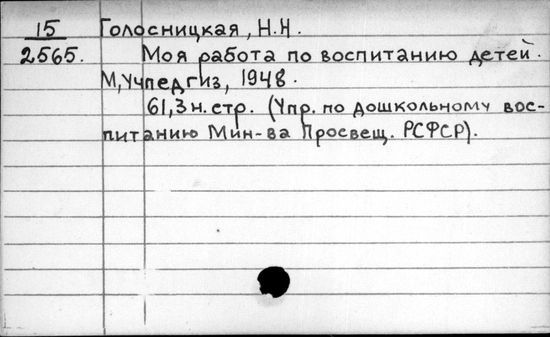 15 Голосницкая, Н.Н.
2565. Моя работа по воспитанию детей.
М, Учпедгиз, 1948.
61,3 н. стр. (Упр. по дошкольному вос-
питанию Мин-ва Просвещ. РСФСР).